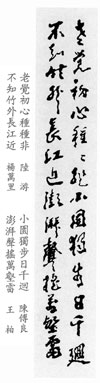 老覺初心種種非小園獨步日千迴
不知竹外長江近澎湃聲搖萬壑雷
老覺初心種種非 陸 游
不知竹外長江近 楊萬里
小園獨步日千迴 陳傅良
澎湃聲搖萬壑雷 王 柏